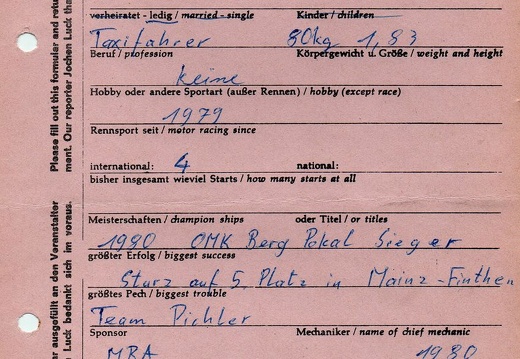 verheiratet - ledig / married - single Kinder / children
Taxifahrer 80kg 1,83
Beruf / profession Körpergewicht u. Größe / weight and height
keine
Hobby oder andere Sportart (außer Rennen) / hobby (except race)
1979
Rennsport seit / motor racing since
international: 4 national:
bisher insgesamt wieviel Starts / how many starts at all
Meisterschaften / champion ships oder Titel / or titles
1980 OMK Berg Pokal Sieger
größter Erfolg / biggest success
Sturz auf 5 Platz in Mainz-Finthen
größtes Pech / biggest trouble
Team Pichler
Sponsor Mechaniker / name of chief mechanic
MBA 1980
Please fill out this formular and retu
ment. Our reporter Jochen Luck tha
ar ausgefüllt an den Veranstalter
n Luck bedankt sich im voraus.